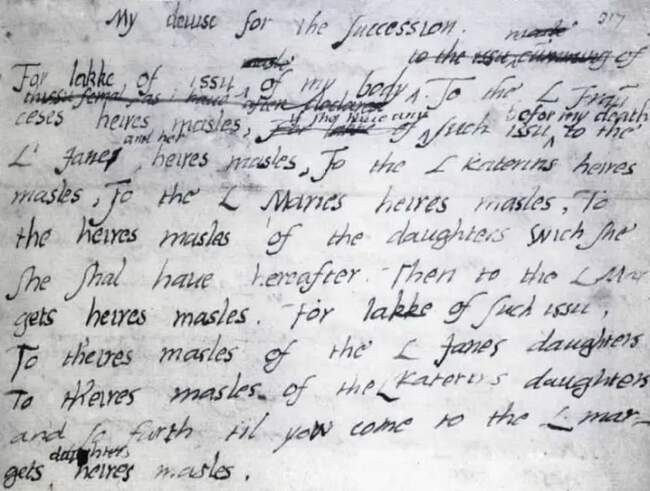 My devise for the succession.
317
male
to the issu cumming of
For lakke of issu male of my body. To the L Frau
thissu femal, as i have after declared
if she have any before my death
ceses heires masles, For lakke of such issu, to the
and her
L' Janes heires masles, To the L Katerins heires
masles, To the L Maries heires masles, To
the heires masles of the daughters wich she
she shal have hereafter. Then to the L Mar
gets heires masles. For lakke of such issu,
To th'eires masles of the L Janes daughters
To th'eires masles of the L Katerins daughters
and so furth til yow come to the L mar-
daughters
gets heires masles.